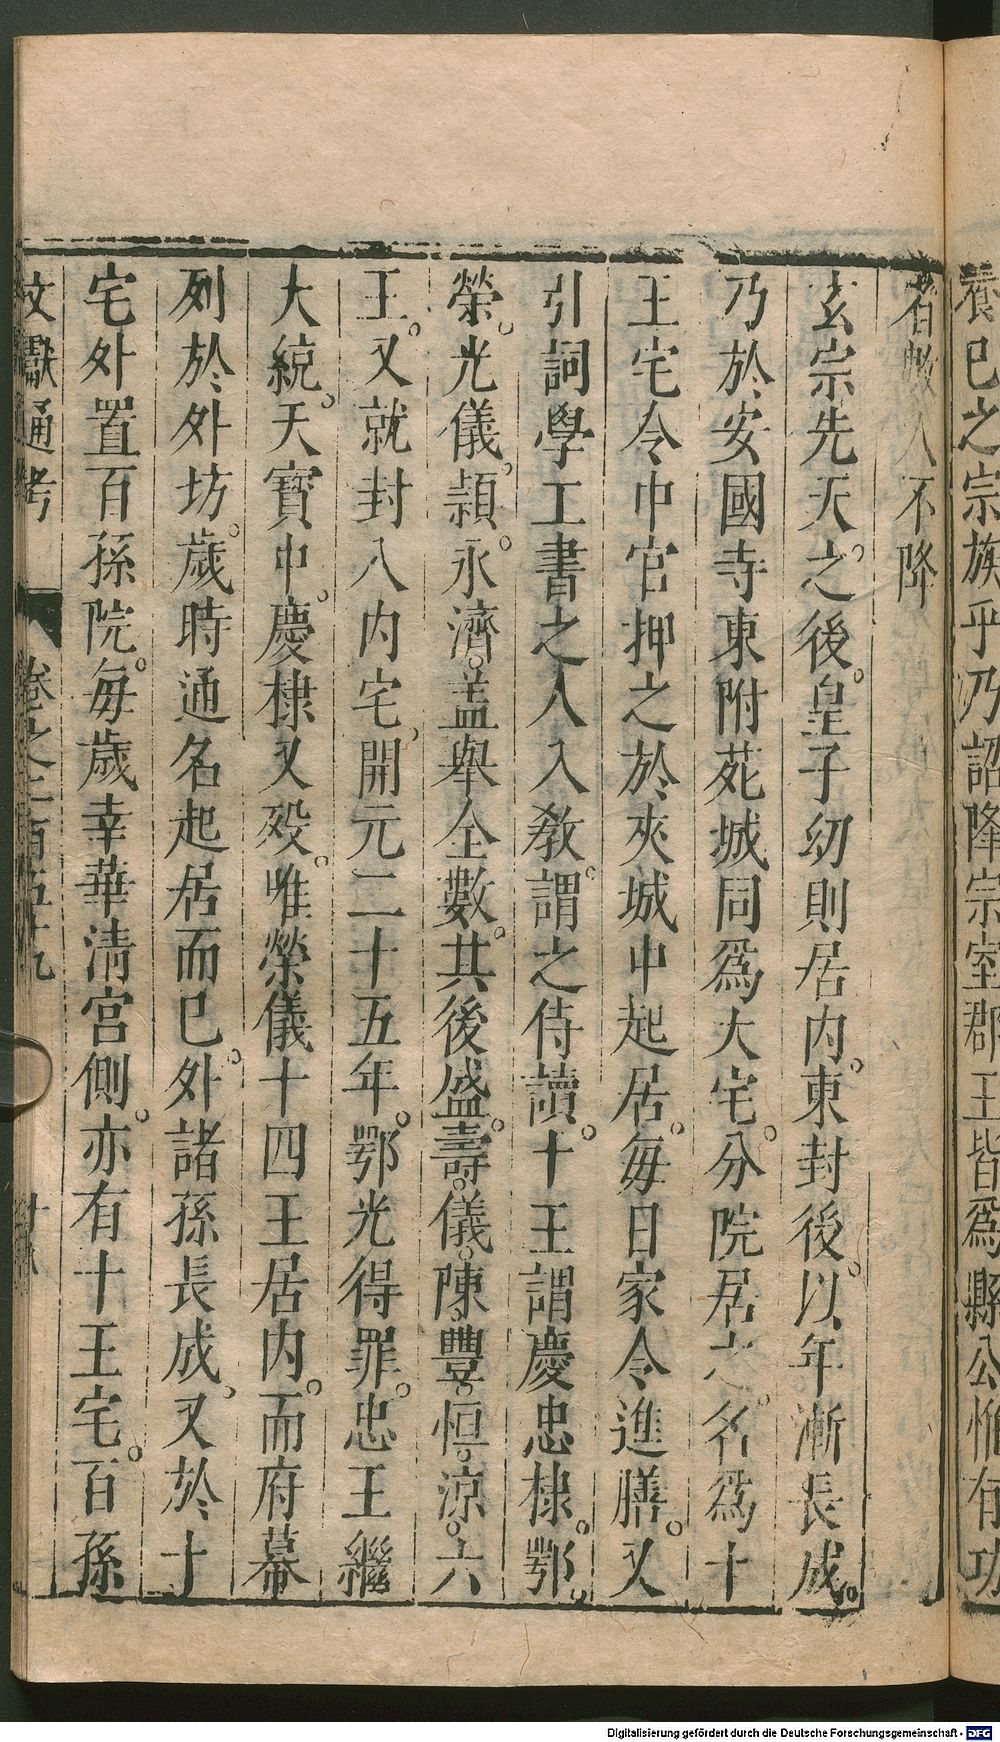 養已之宗族乎乃詔降宗室郡王皆爲縣公惟有功
者數人不降
玄宗先天之後。皇子幼則居内。東封後。以年漸長成。
乃於安國寺東附苑城同爲大宅。分院居之。名爲十
王宅令中官押之於夾城中起居。毎日家令進膳。又
引詞學工書之人入教。謂之侍讀。十王謂慶忠棣。鄂。
榮。光儀。潁。永。濟。盖舉全數。其後盛壽。儀。陳。豐。恒。涼。六
王。又就封入内宅。開元二十五年。鄂光得罪。忠王繼
大統。天寶中。慶棣又殁。唯榮儀十四王居内。而府幕
列於外坊。歲時通名起居而已。外諸孫長成。又於十
宅外置百孫院。毎歲幸華淸宮側。亦有十王宅。百孫
文獻通考 卷之二百五十九 廿八
Digitalisierung gefördert durch die Deutsche Forschungsgemeinschaft - DFG